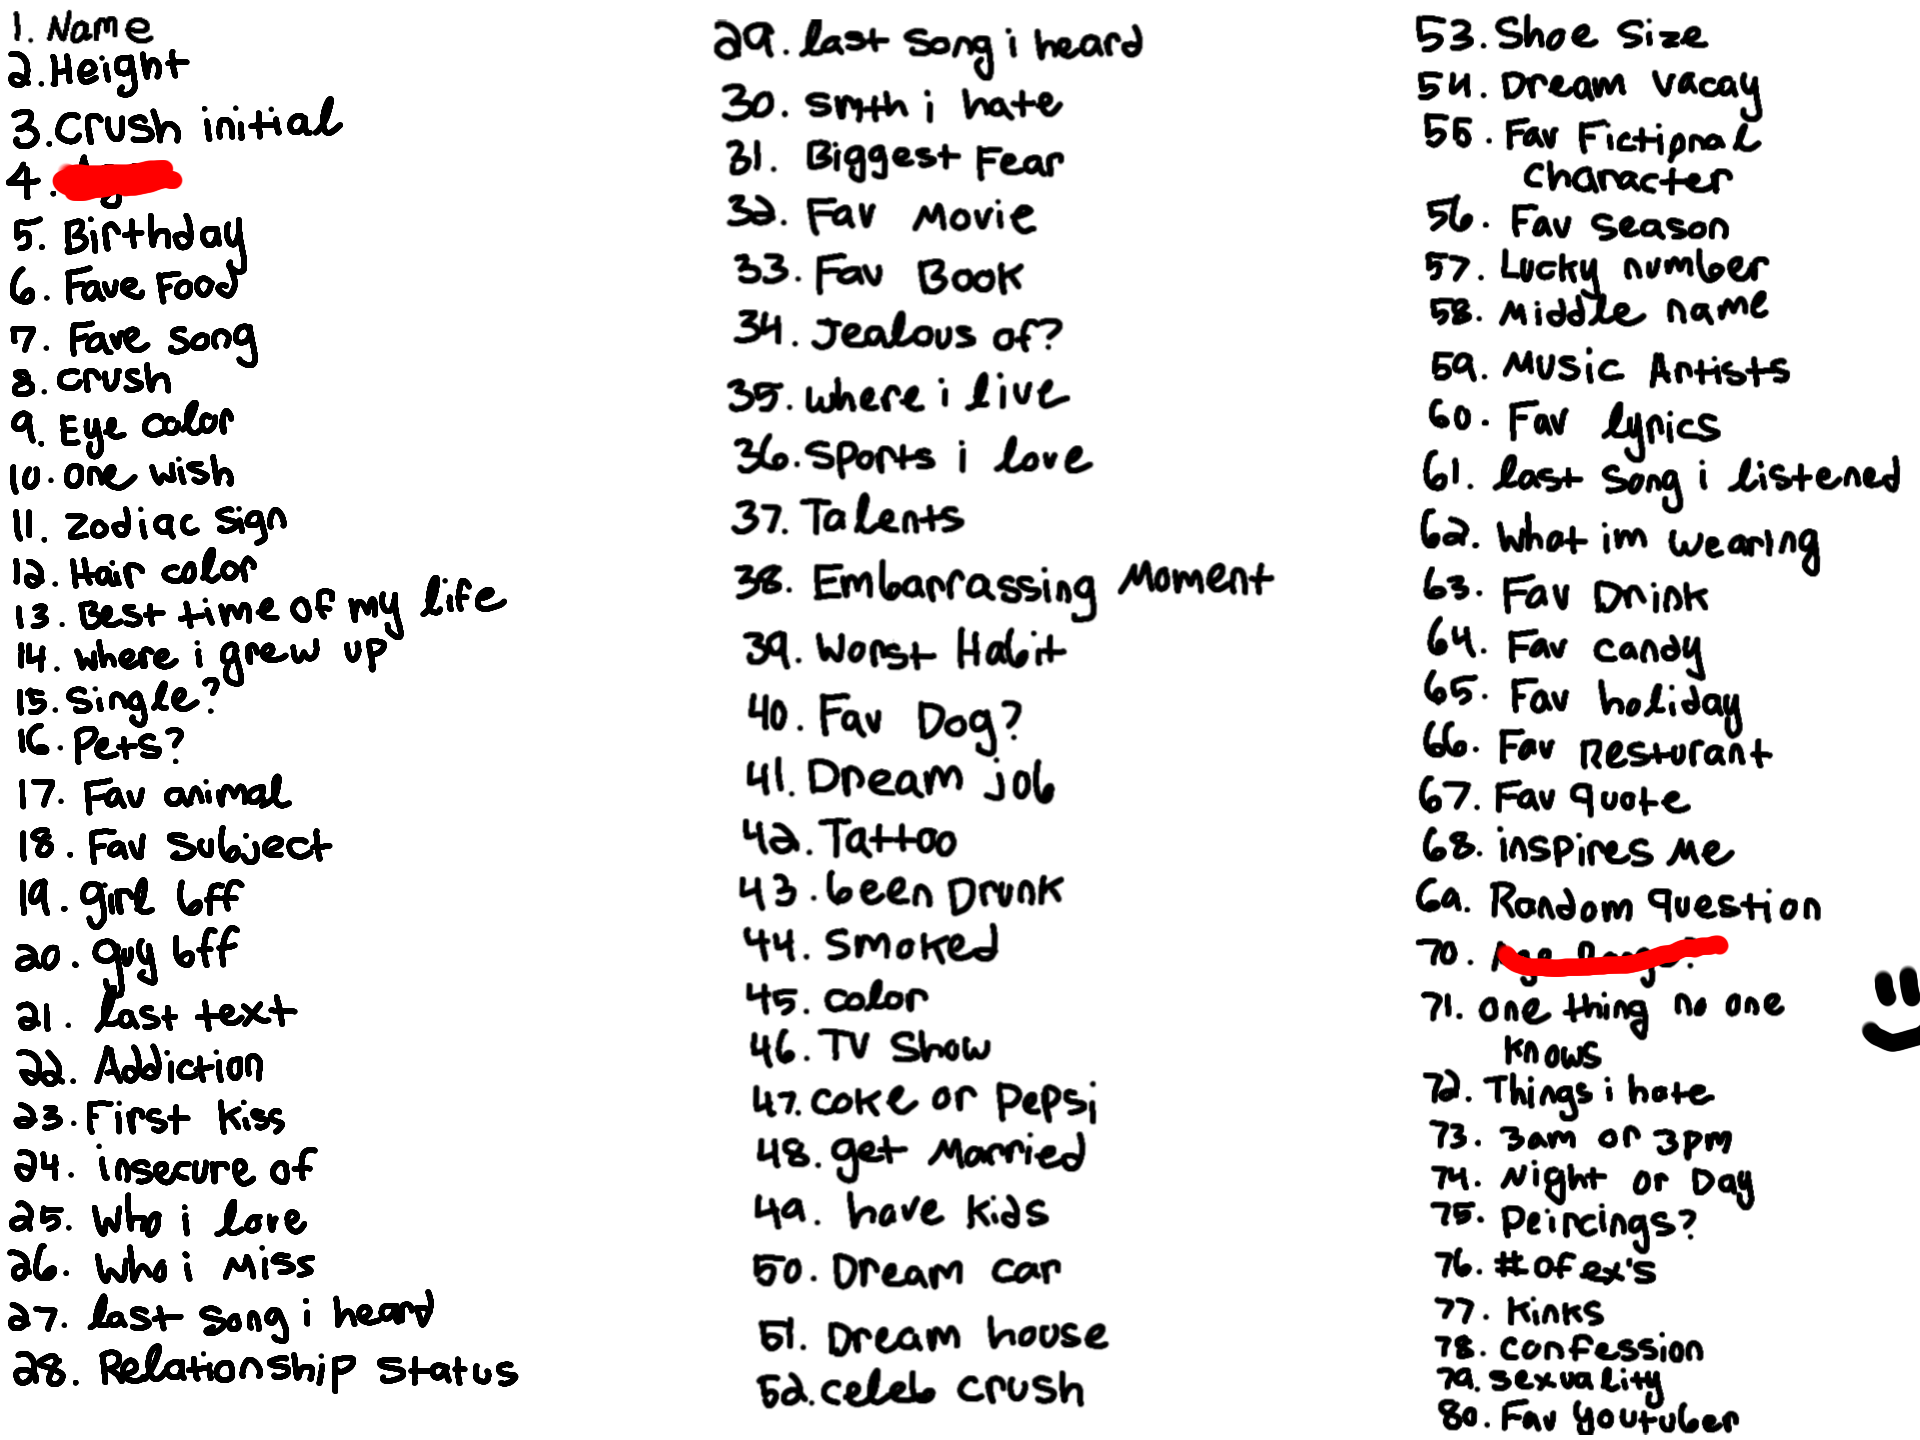 1. Name
2. Height
3. Crush initial
4.
5. Birthday
6. Fave Food
7. Fave song
8. crush
9. Eye color
10. one wish
11. zodiac sign
12. Hair color
13. Best time of my life
14. where i grew up
15. single?
16. Pets?
17. Fav animal
18. Fav subject
19. girl bff
20. guy bff
21. last text
22. Addiction
23. First kiss
24. insecure of
25. Who i love
26. Who i Miss
27. last song i heard
28. Relationship status
29. last song i heard
30. smth i hate
31. Biggest Fear
32. Fav Movie
33. Fav Book
34. Jealous of?
35. where i live
36. sports i love
37. Talents
38. Embarrassing Moment
39. Worst Habit
40. Fav Dog?
41. Dream job
42. Tattoo
43. been Drunk
44. Smoked
45. color
46. TV Show
47. coke or pepsi
48. get Married
49. have kids
50. Dream car
51. Dream house
52. celeb crush
53. Shoe Size
54. Dream vacay
55. Fav Fictional
character
56. Fav season
57. Lucky number
58. Middle name
59. Music Artists
60. Fav lyrics
61. last song i listened
62. What im wearing
63. Fav Drink
64. Fav candy
65. Fav holiday
66. Fav Resturant
67. Fav quote
68. inspires Me
69. Random question
70.
71. one thing no one
knows
72. Things i hate
73. 3am or 3pm
74. Night or Day
75. Peircings?
76. # of ex's
77. kinks
78. confession
79. sexuality
80. Fav youtuber